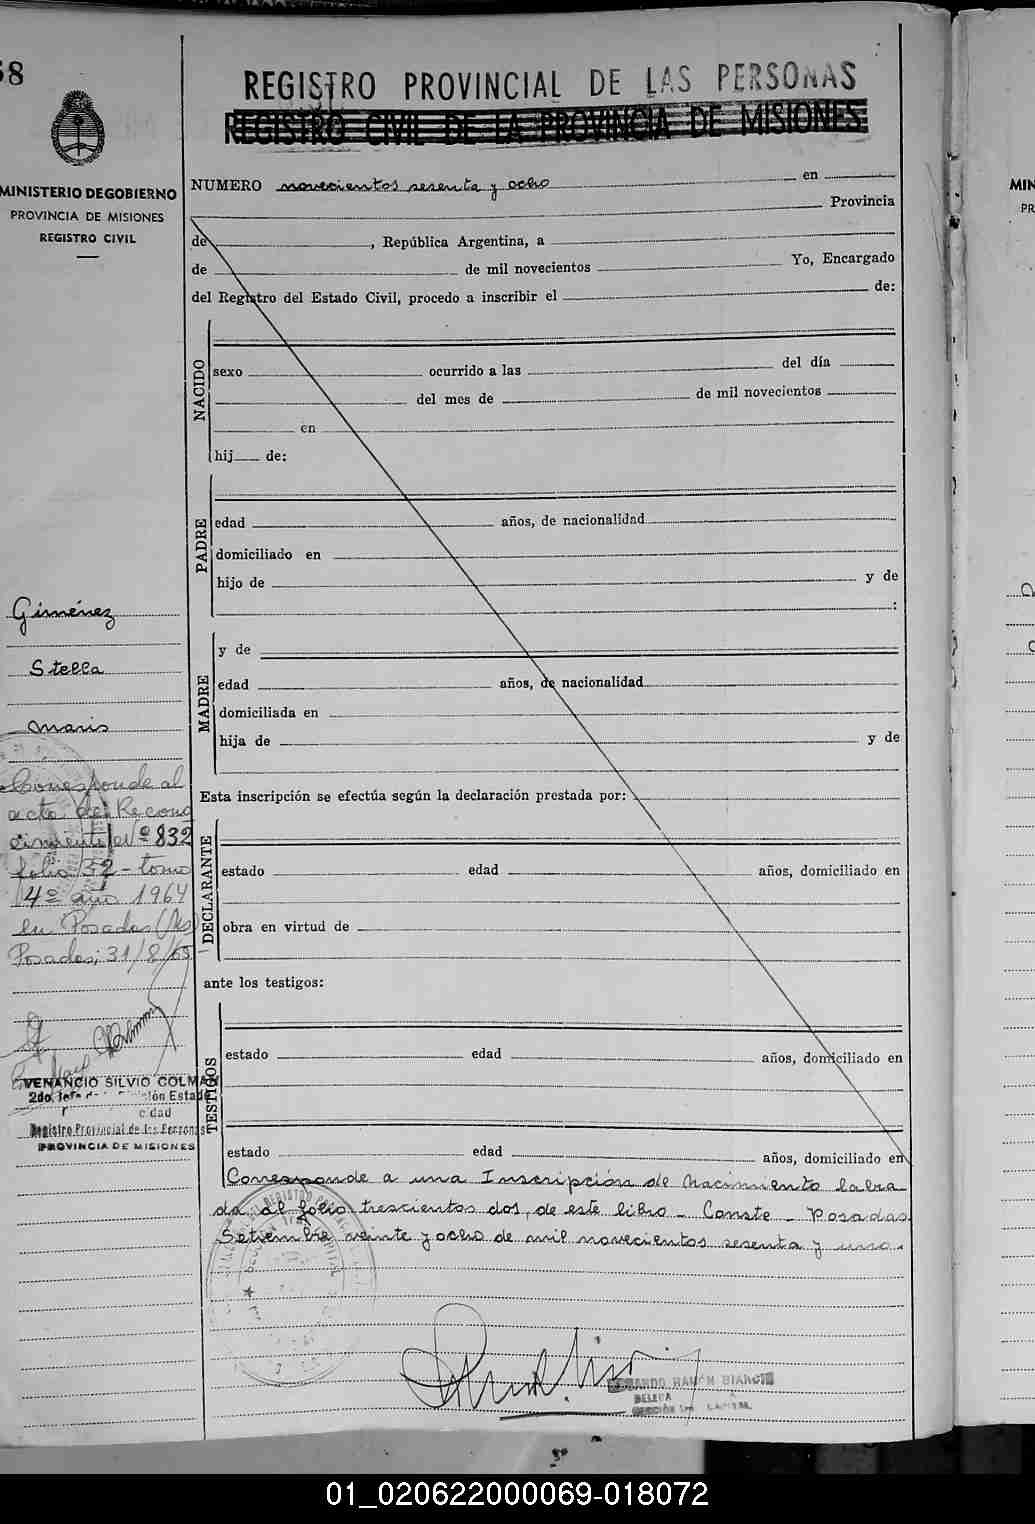 58
REGISTRO PROVINCIAL DE LAS PERSONAS
REGISTRO CIVIL DE LA PROVINCIA DE MISIONES
MINISTERIO DE GOBIERNO
PROVINCIA DE MISIONES
REGISTRO CIVIL
NUMERO novecientos sesenta y ocho en
Provincia
de , República Argentina, a
de de mil novecientos Yo, Encargado
del Registro del Estado Civil, procedo a inscribir el de:
NACIDO
sexo ocurrido a las del día
del mes de de mil novecientos
en
hij de:
PADRE
edad años, de nacionalidad
domiciliado en
hijo de y de
:
MADRE
y de
edad años, de nacionalidad
domiciliada en
hija de y de
Esta inscripción se efectúa según la declaración prestada por:
DECLARANTE
estado edad años, domiciliado en
obra en virtud de
ante los testigos:
TESTIGOS
estado edad años, domiciliado en
estado edad años, domiciliado en
Corresponde a una Inscripción de Nacimiento labra
da al folio trescientos dos, de este libro - Conste - Posadas
Setiembre veinte y ocho de mil novecientos sesenta y uno.
Giménez
Stella
Maris
Corresponde al
acta de Recono
cimiento Nº 832
folio 32 - tomo
4º año 1964
en Posadas (Ms)
Posadas, 31/8/65
VENANCIO SILVIO COLMAN
2do. Jefe de División Estado
Registro Provincial de las Personas
PROVINCIA DE MISIONES
RAMÓN BIANCHI
SECCIÓN 1ra CAPITAL
MIN
PR
01_020622000069-018072